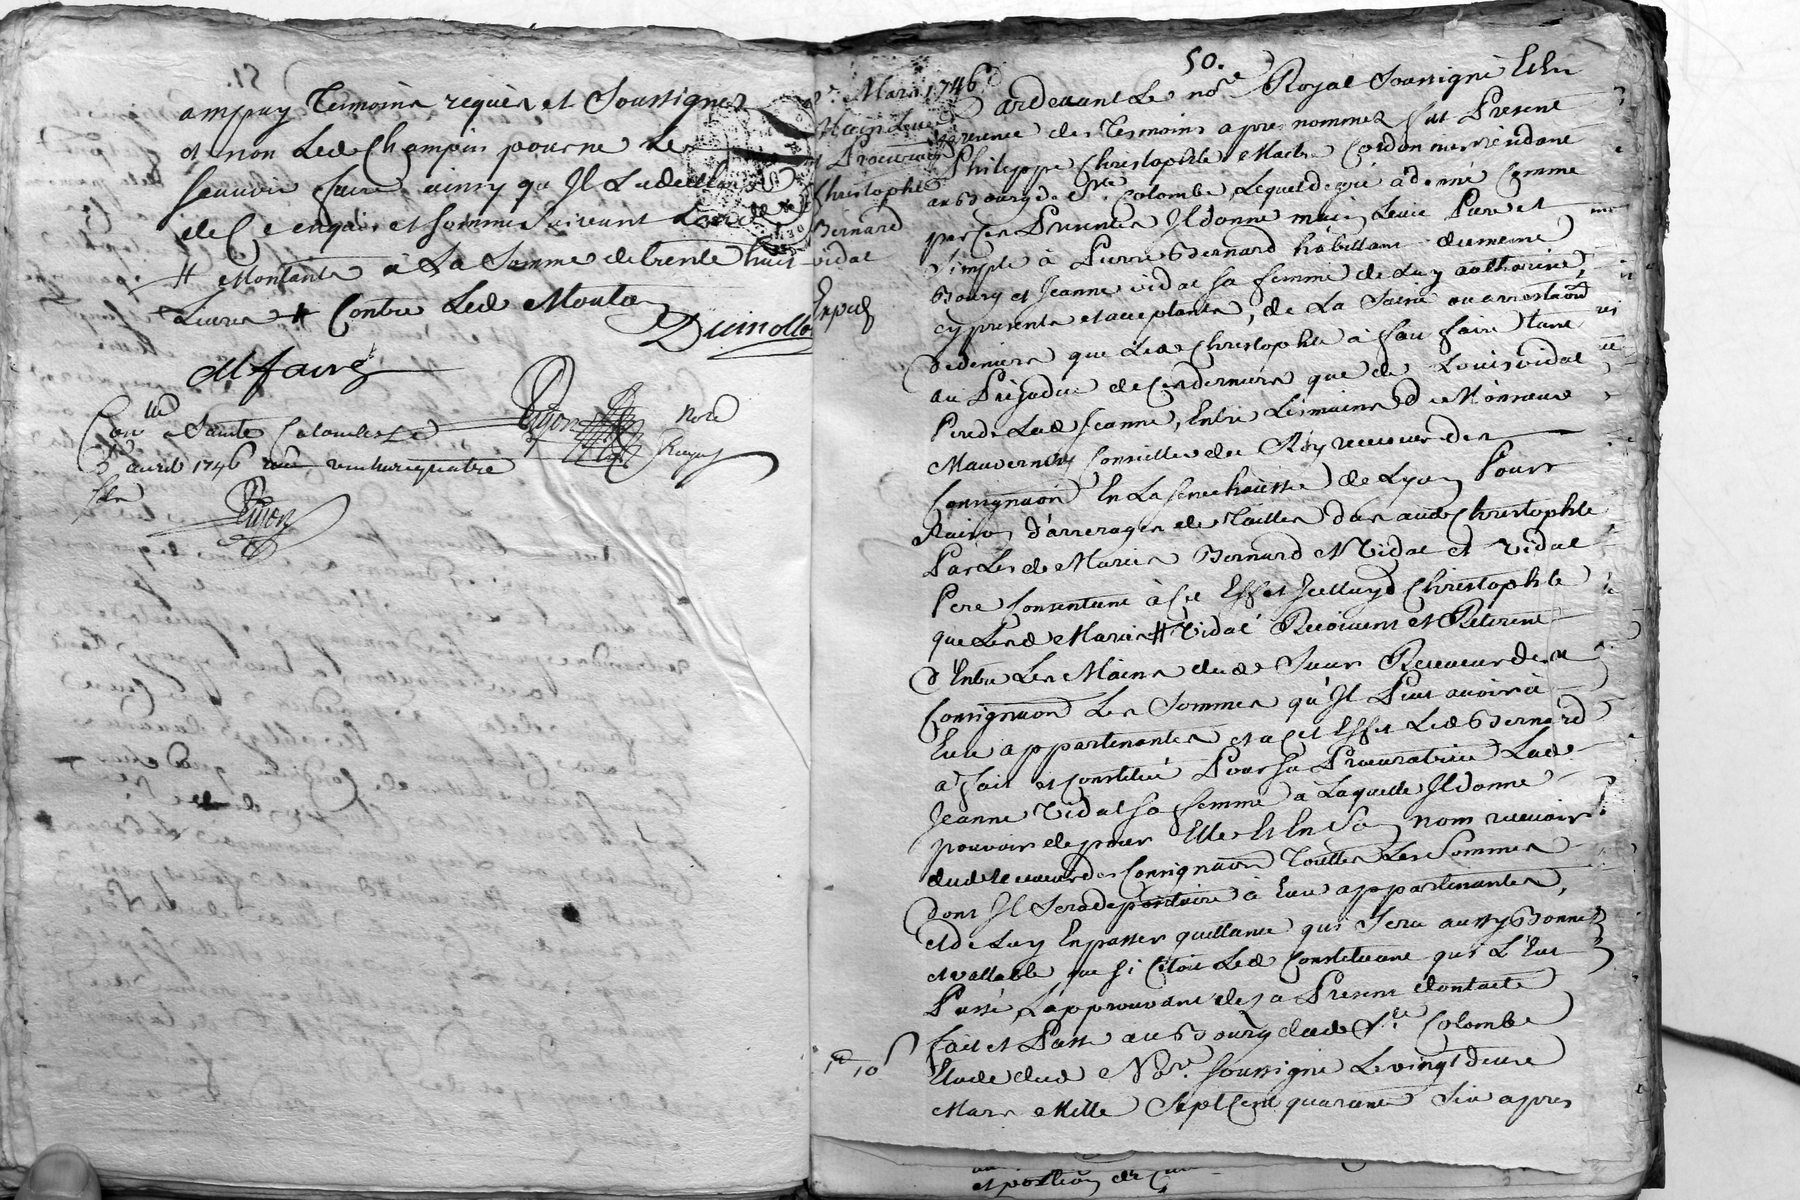 ampuy Tesmoins requis et Soussignes
et non Led Champin pour ne Le
Scavoir faire ainsy qu Il La declare
de Ce enquis et Sommé Suivant Lord
# Montants à La Somme de trente huit
Livres # Contre Led Mouton
Dumolle
M faure
Con lle a Sainte Colombe Le
avril 1746 vingt quatre
sols
Guyon
Guyon
Nore
Royal
50.
Mars 1746
Main Levée
et Procuration
Christophle
Bernard
vidal
Expié
Pardevant Le nore Royal Soussigné Et En
presence des Tesmoins apres nommez fut Present
Philippe Christophle Maitre Cordonnier residant
au Bourg de Ste Colombe, Lequel de gré à donné Comme
par Ces Presentes Il donne main Levée Pure et
Simple à Pierre Bernard habittant dumeme
Bourg et Jeanne vidal sa femme de Luy authorisée,
cy presents et acceptants, de La Saisie ou arrestaon
de deniers que Led Christophle à fait faire tant
au Préjudice de Ces derniers que de Louis vidal
Pere de Lad Jeanne, Entre Les mains de Monsieur
Mauvernay Conseiller du Roy receveur des
Consignaons En La Senechaussée de Lyon Pour
Raison d'arrerages de Tailles dus aud Christophle
Par Les d Mariés Bernard et Vidal et Vidal
Pere Consentant à Cet Effet Icelluy d Christophle
que Lesd Mariés # Vidal Recoivent et Retirent
d'Entre Les Mains dud Sieur Receveur des
Consignaons Les Sommes qu'Il Peut avoir à
Eux appartenantes et a Cet Effet Led Bernard
a fait et Constitué Pour Sa Procuratrice Lad
Jeanne Vidal Sa femme a Laquelle Il donne
pouvoir de pour Elle Et En Son nom recevoir
dud receveur des Consignaons Touttes Les Sommes
dont Il Sera depositaire à Eux appartenantes,
et de Luy En passer quittance qui Sera aussy Bonne
et vallable que Si C'étoit Led Constituant qui L'Eut
Passé, L'approuvant des a Present dont acte
fait et Passé au Bourg dud Ste Colombe
Etude dud Nore Soussigné Le vingt deux
Mars Mille Sept Cent quarante Six apres
et portion de